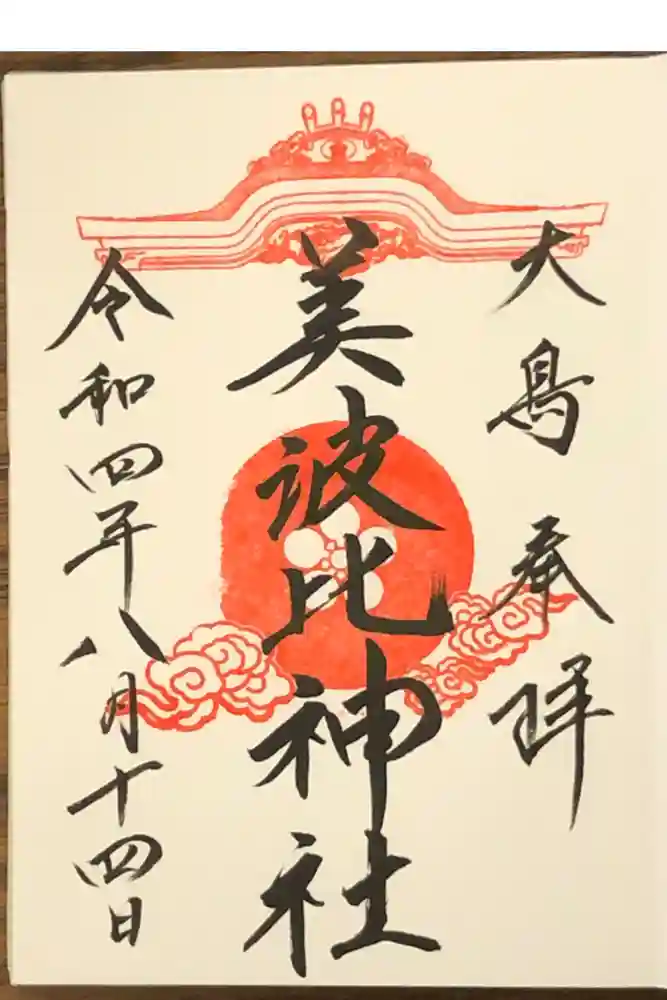 大鳥奉拝
美波比神社
令和四年八月十四日